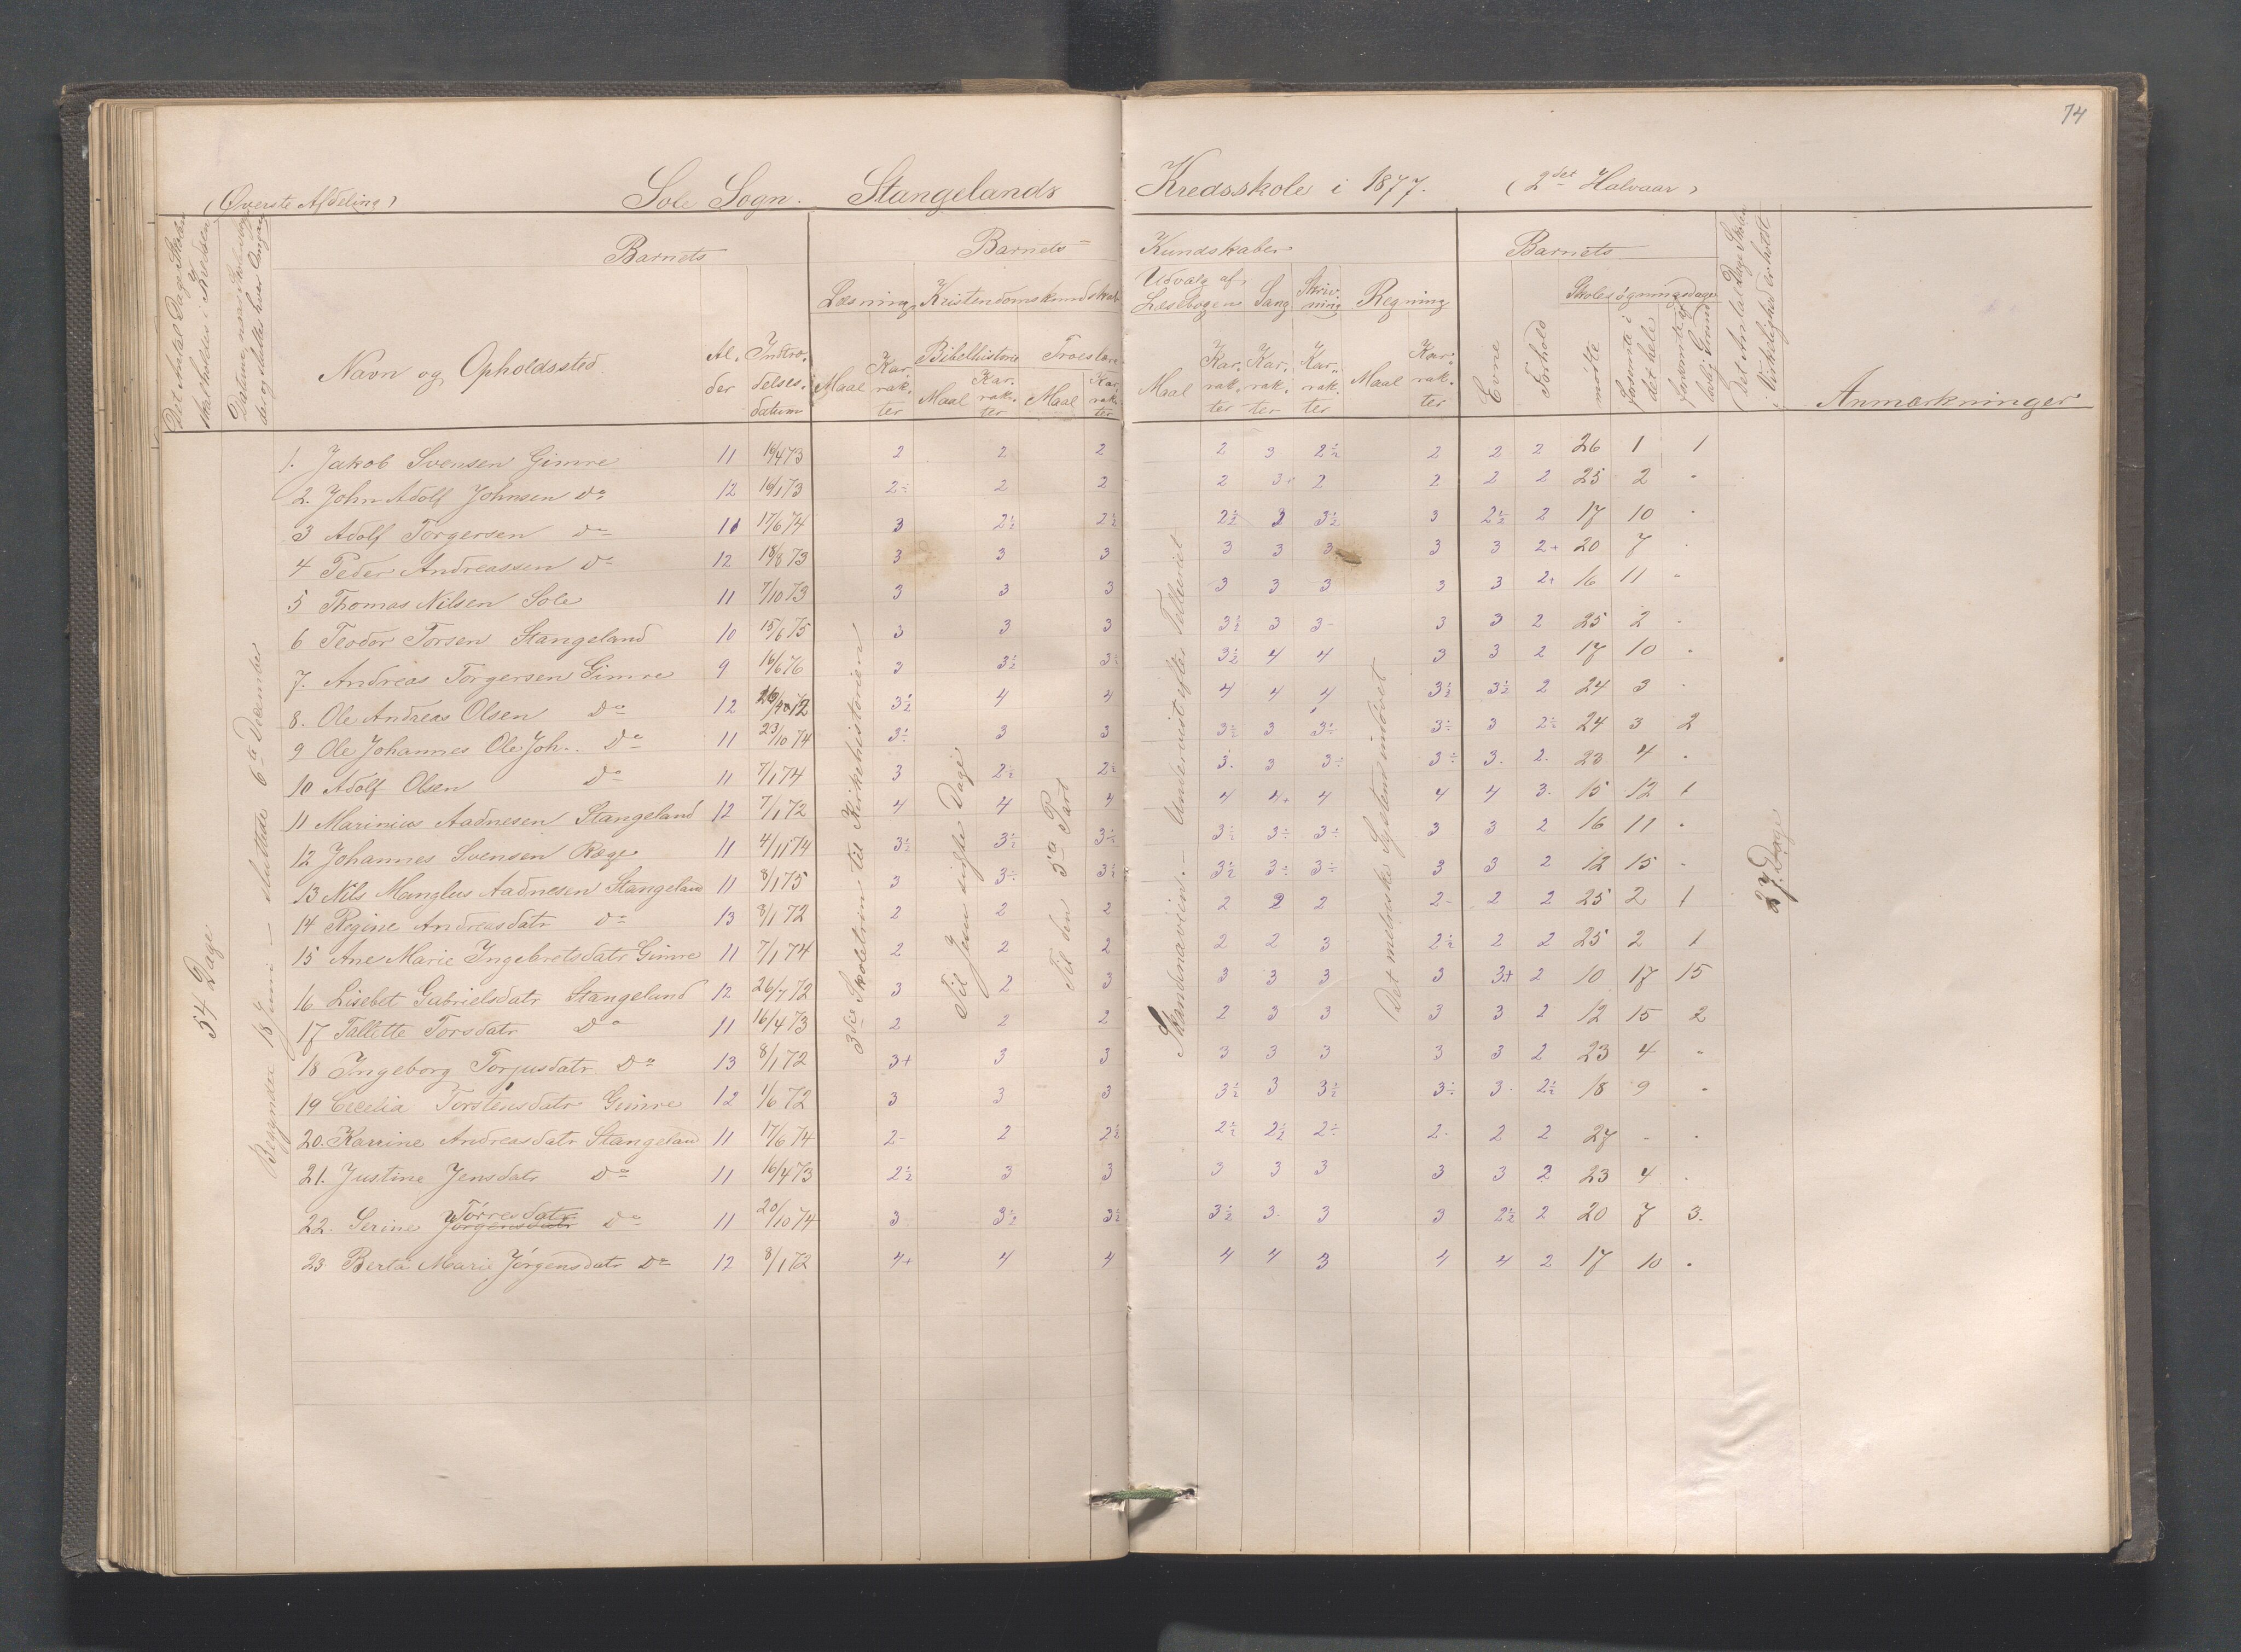 74
(Øverste Afdeling) Sole Sogn. Stangelands Kredsskole i 1877. (2det Halvaar)
Det Antal Dage Skolen skal holdes i Kredsen
Barnets Barnets Kundskaber Barnets
Navn og Opholdssted Alder Indtrædelsesdatum
Læsning Kristendomskundskab Udvalg af Læsebogen Sang Skrivning Regning Evne Forhold Skolesøgningsdage
Bibelhistorie Troeslære
Maal Karakter Maal Karakter Maal Karakter Maal Karakter Karakter Karakter Maal Karakter mødte forsømte i det hele forsømte af lovlig Grund
Det Antal Dage Skolen i Virkeligheden er holdt
Anmærkninger
54 Dage
Begynder 18 Juni – sluttede 6te December
3die Skoletrin til Kirkehistorien
Til Jesu sidste Dage
Til den 3die Part
Skandinavien. – Undervist efter Telleriet
Det metriske System indøvet
27 Dage
1. Jakob Svensen Gimre 11 16/4 73 2 2 2 2 3 2½ 2 2 2 26 1 1
2. John Adolf Johnsen Do 12 16/1 73 2÷ 2 2 2 3+ 2 2 2 2 25 2 "
3 Adolf Torgersen Do 11 17/6 74 3 2½ 2½ 2½ 3 3½ 3 2½ 2 17 10 "
4 Peder Andreassen Do 12 18/8 73 3 3 3 3 3 3 3 3 2+ 20 7 "
5 Thomas Nilsen Sole 11 7/10 73 3 3 3 3 3 3 3 3 2+ 16 11 "
6 Teodor Torsen Stangeland 10 15/6 75 3 3 3 3½ 3 3- 3 3 2 25 2 "
7. Andreas Torgersen Gimre 9 16/6 76 3 3½ 3½ 3½ 4 4 3 3 2 17 10 "
8. Ole Andreas Olsen Do 12 3½ 4 4 4 4 4 3½ 3½ 2 24 3 "
9 Ole Johannes Ole Joh.. Do 11 23/10 74 3÷ 3 3 3½ 3 3÷ 3÷ 3 2½ 24 3 2
10 Adolf Olsen Do 11 7/1 74 3 2½ 2½ 3. 3 3÷ 3÷ 3. 2. 23 4 "
11 Marinius Aadnesen Stangeland 12 7/1 72 4 4 4 4 4+ 4 4 4 3. 15 12 1
12 Johannes Svensen Ræge 11 4/11 74 3½ 3½ 3½ 3÷ 3÷ 3÷ 3 3 2 16 11 "
13 Nils Manglus Aadnesen Stangeland 11 8/1 75 3 3÷ 3½ 3½ 3÷ 3÷ 3 3 2 12 15 "
14 Regine Andreasdatr Do 13 8/1 72 2 2 2 2 2 2 2- 2 2 25 2 1
15 Ane Marie Ingebretsdatr Gimre 11 7/1 74 2 2 2 2 2 3 2½ 2 2 25 2 1
16 Lisebet Gabrielsdatr Stangeland 12 26/7 72 3 2 3 3 3 3 3 3+ 2 10 17 15
17 Tallette Torsdatr Do 11 16/4 73 2 2 2 2 3 3 3 3 2 12 15 2
18 Ingeborg Torjusdatr Do 13 8/1 72 3+ 3 3 3 3 3 3 3 2 23 4 "
19 Cecelia Torstensdatr Gimre 12 1/6 72 3 3 3 3½ 3 3½ 3÷ 3. 2½ 18 9 "
20. Karrine Andreasdatr Stangeland 11 17/6 74 2- 2 2½ 2½ 2½ 2÷ 2. 2 2 27 - "
21. Justine Jensdatr Do 11 16/4 73 2½ 3 3 3 3 3 3 3 2 23 4 .
22. Serine Jørgensdatr Tørresdatr Do 11 20/10 74 3 3½ 3½ 3½ 3. 3 3 2½ 2 20 7 3.
23 Berta Marie Jørgensdatr Do 12 8/1 72 4+ 4 4 4 4 3 4 4 2 17 10 .